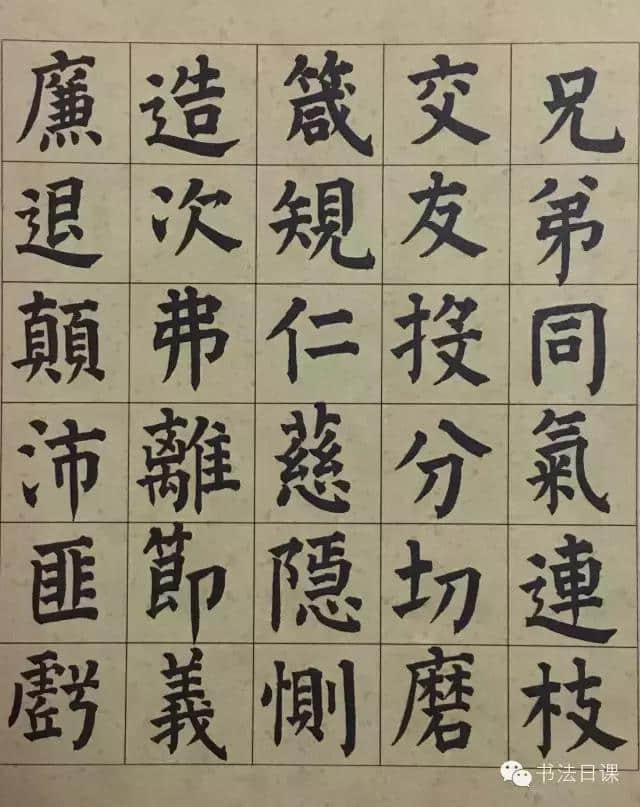 兄弟同氣連枝
交友投分切磨
箴規仁慈隱惻
造次弗離節義
廉退顛沛匪虧
书法日课